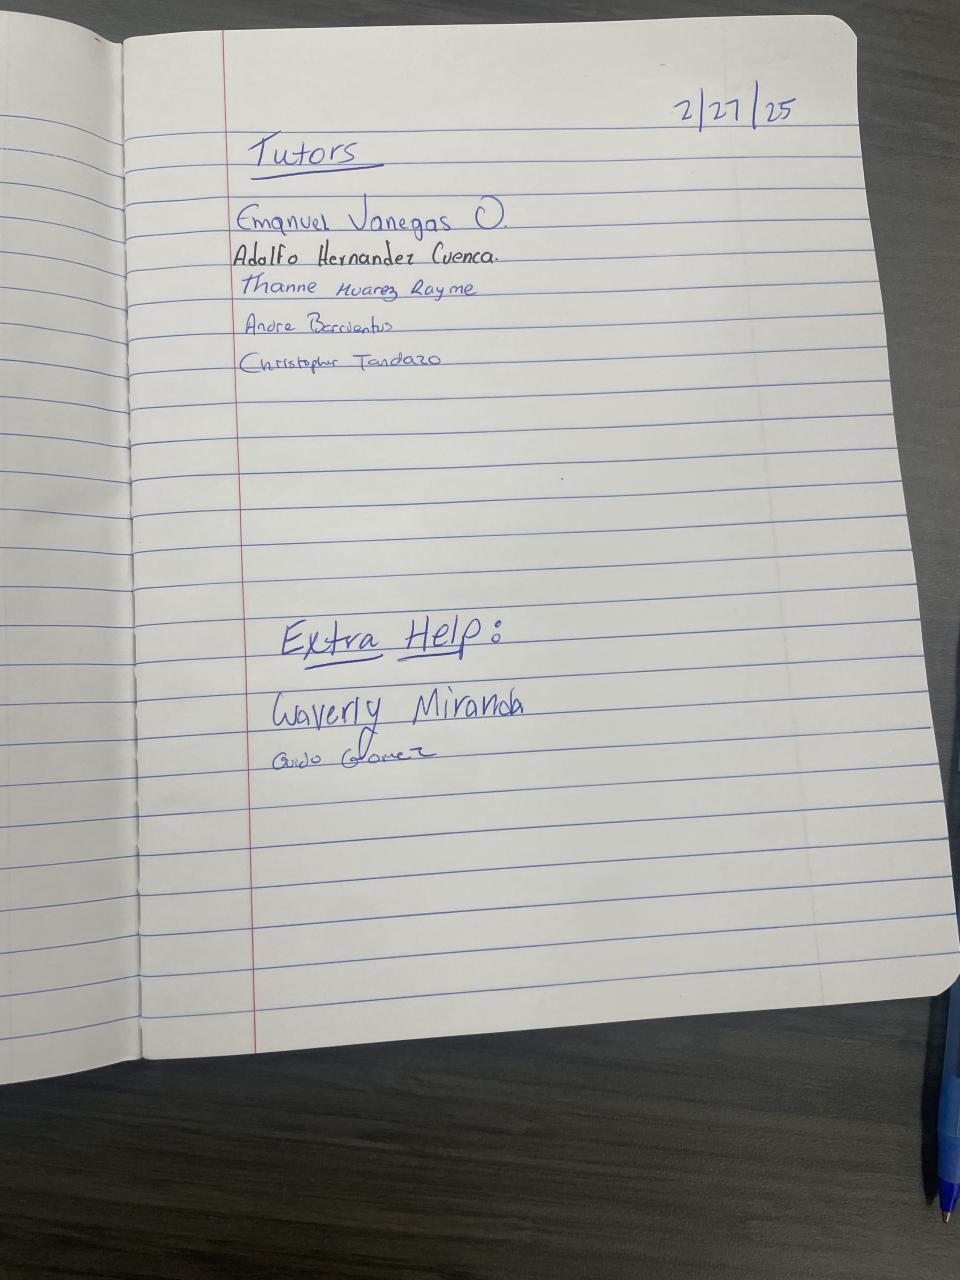 2/27/25
Tutors
Emanuel Vanegas O.
Adolfo Hernandez Cuenca.
Thanne Huarez Rayme
Andre Barrientos
Christopher Tandazo
Extra Help:
Waverly Miranda
Guido Gomez